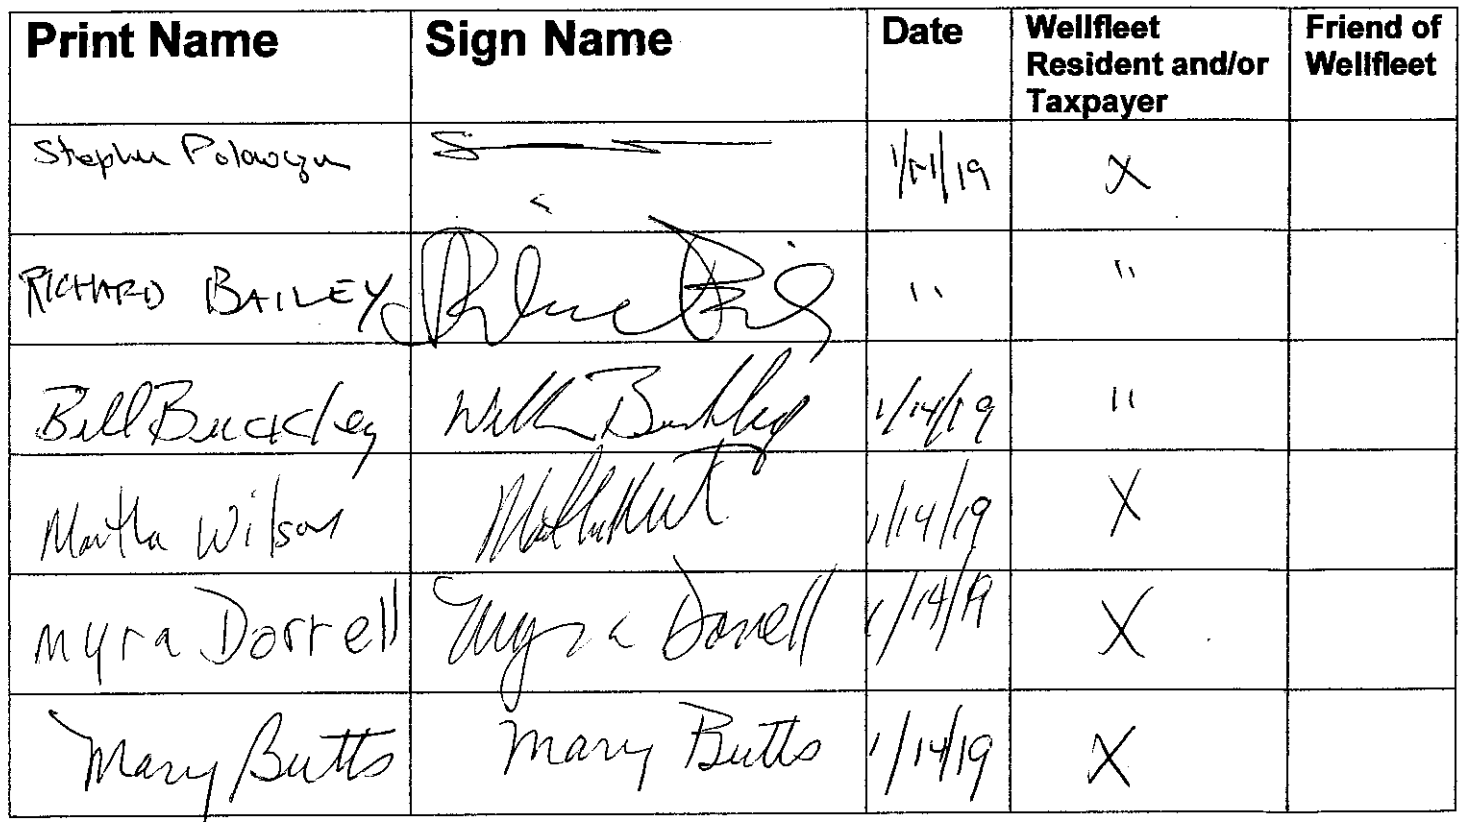 Print Name Sign Name Date Wellfleet Resident and/or Taxpayer Friend of Wellfleet
Stephen 1/14/19 X
RICHARD BAILEY " "
Bill Buckley Buckley 1/14/19 "
Martha Wilson 1/14/19 X
Myra Dorrell Myra Dorrell 1/14/19 X
Mary Butts Mary Butts 1/14/19 X